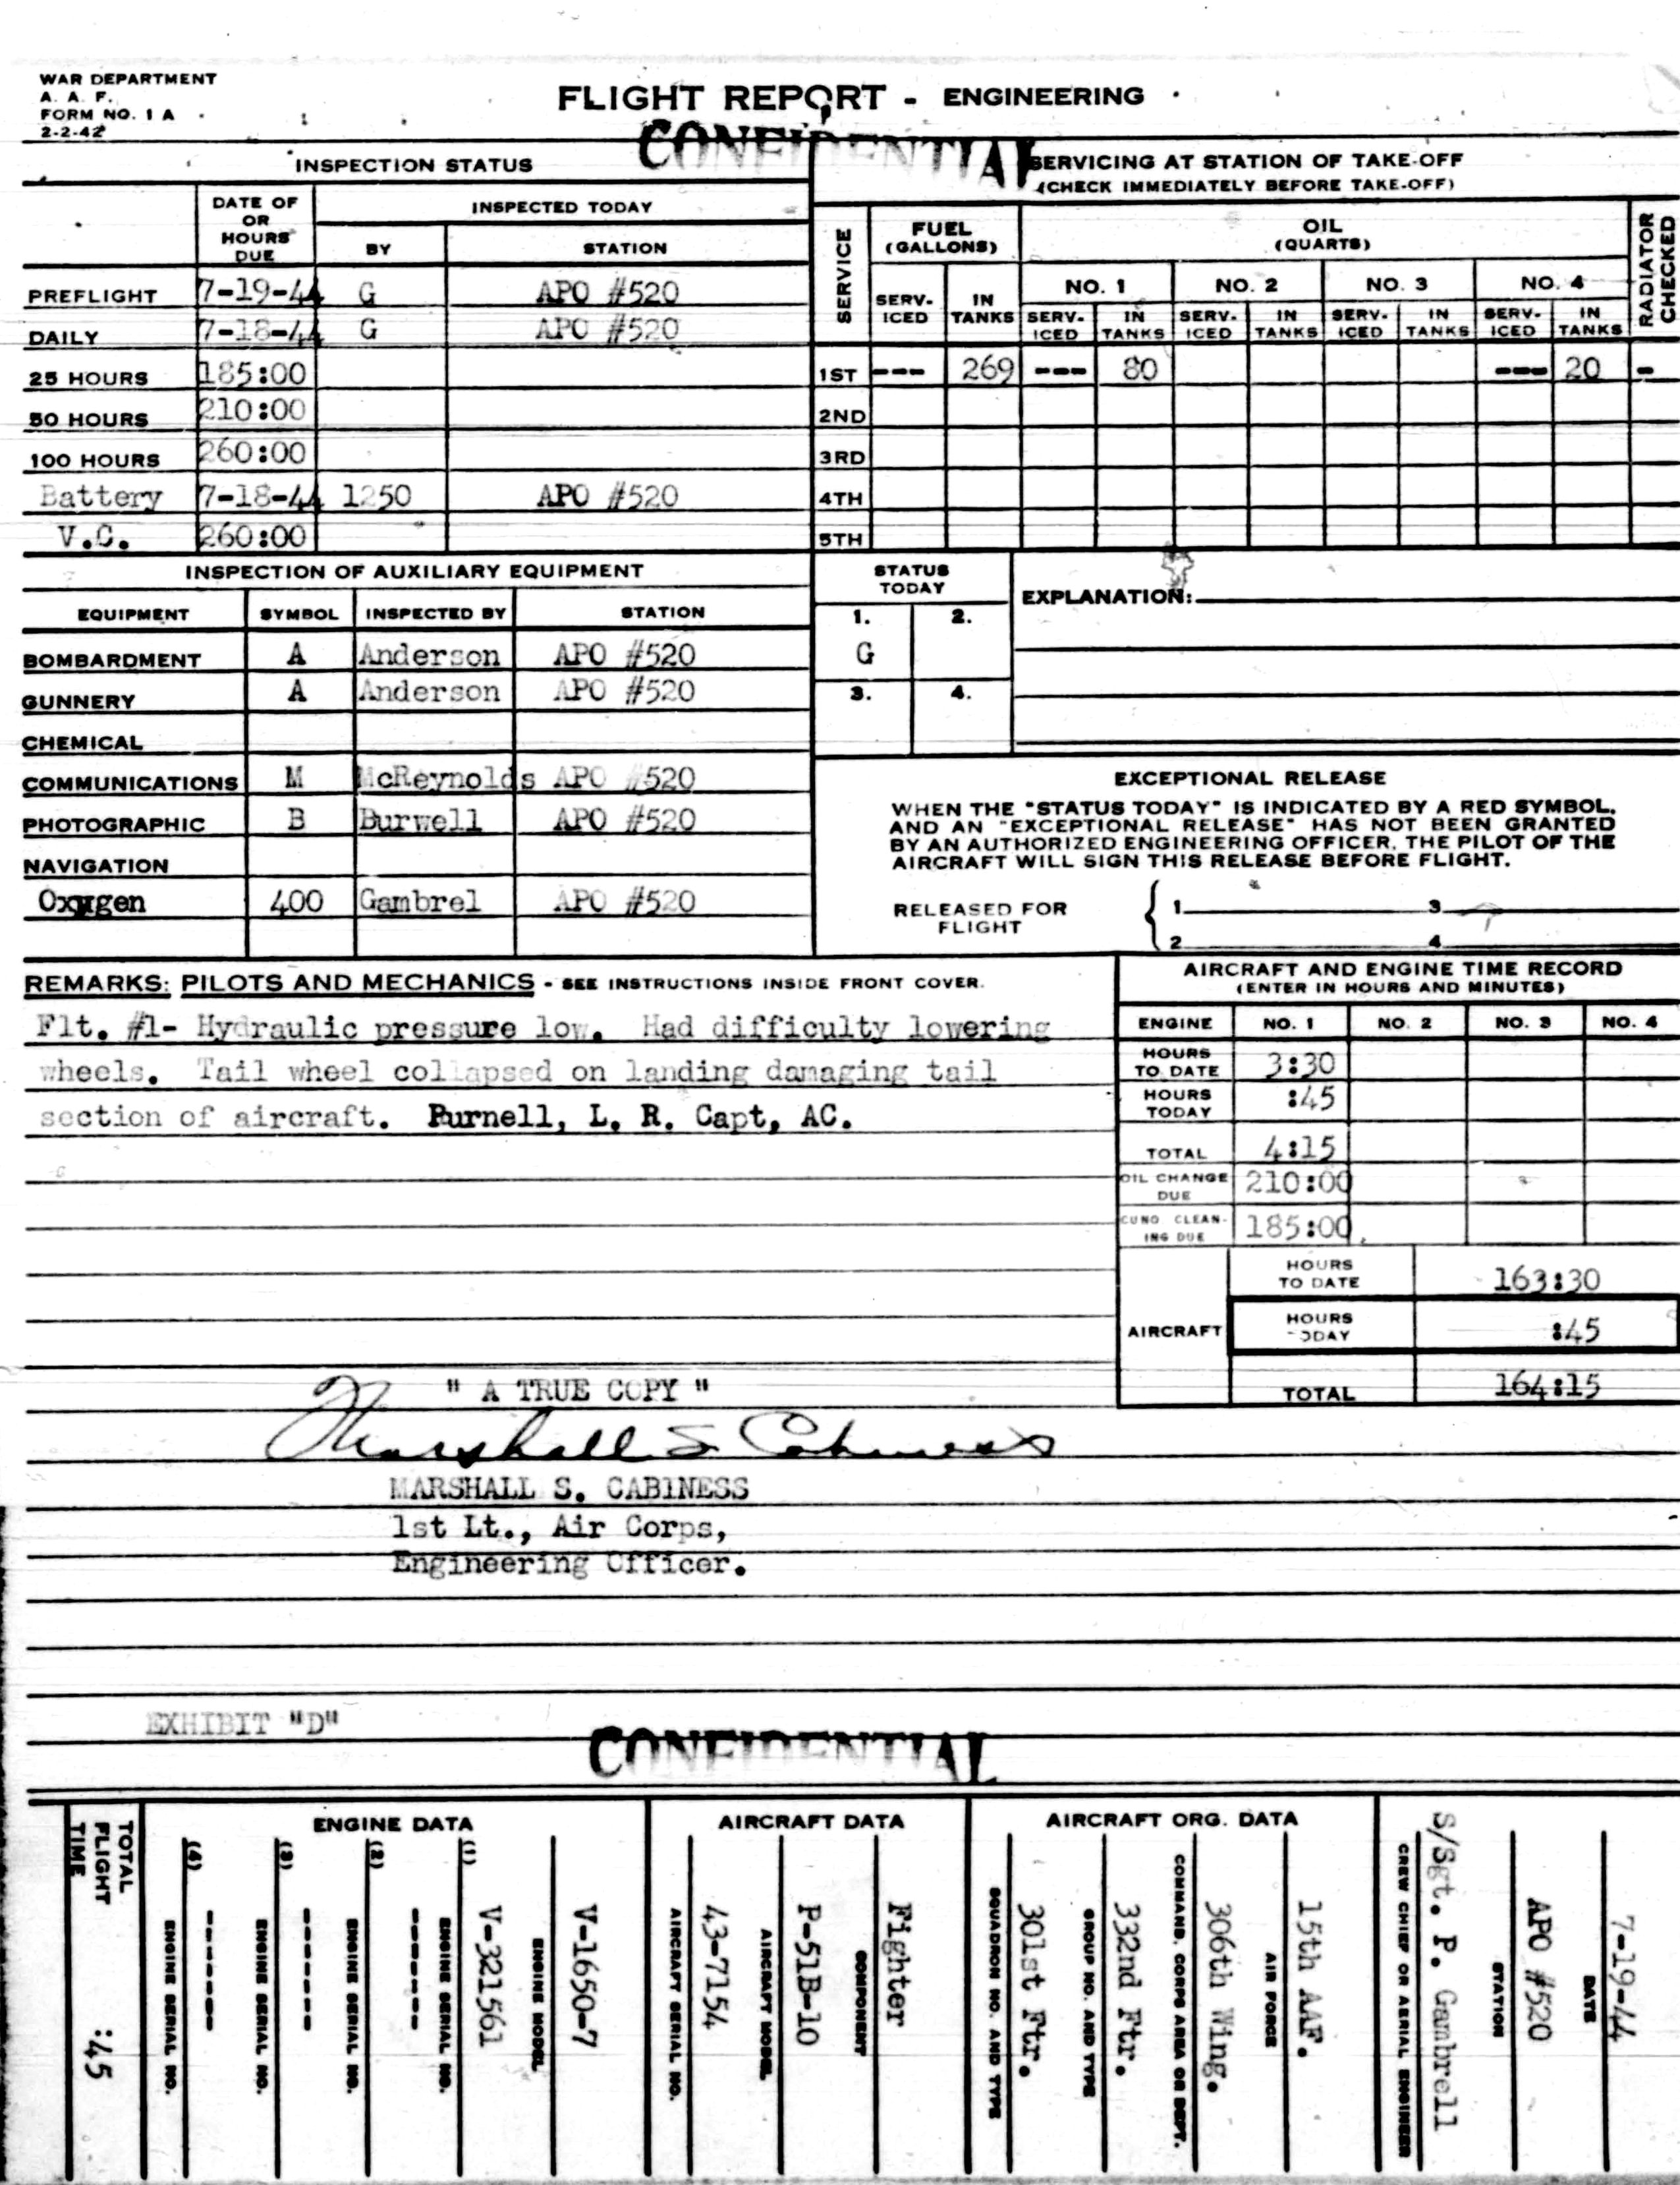 WAR DEPARTMENT
A. A. F.
FORM NO. 1 A
2-2-42
FLIGHT REPORT - ENGINEERING
CONFIDENTIAL
INSPECTION STATUS
DATE OF OR HOURS DUE
INSPECTED TODAY
BY STATION
PREFLIGHT 7-19-44 G APO #520
DAILY 7-18-44 G APO #520
25 HOURS 185:00
50 HOURS 210:00
100 HOURS 260:00
Battery 7-18-44 1250 APO #520
V.C. 260:00
SERVICING AT STATION OF TAKE-OFF
(CHECK IMMEDIATELY BEFORE TAKE-OFF)
SERVICE
FUEL (GALLONS)
OIL (QUARTS)
RADIATOR CHECKED
NO. 1 NO. 2 NO. 3 NO. 4
SERV-ICED IN TANKS SERV-ICED IN TANKS SERV-ICED IN TANKS SERV-ICED IN TANKS SERV-ICED IN TANKS
1ST --- 269 --- 80 --- 20 -
2ND
3RD
4TH
5TH
INSPECTION OF AUXILIARY EQUIPMENT
EQUIPMENT SYMBOL INSPECTED BY STATION
BOMBARDMENT A Anderson APO #520
GUNNERY A Anderson APO #520
CHEMICAL
COMMUNICATIONS M McReynolds APO #520
PHOTOGRAPHIC B Burwell APO #520
NAVIGATION
Oxygen 400 Gambrel APO #520
STATUS TODAY
1. 2.
G
3. 4.
EXPLANATION:
EXCEPTIONAL RELEASE
WHEN THE "STATUS TODAY" IS INDICATED BY A RED SYMBOL,
AND AN "EXCEPTIONAL RELEASE" HAS NOT BEEN GRANTED
BY AN AUTHORIZED ENGINEERING OFFICER, THE PILOT OF THE
AIRCRAFT WILL SIGN THIS RELEASE BEFORE FLIGHT.
RELEASED FOR FLIGHT
1 3
2 4
REMARKS: PILOTS AND MECHANICS - SEE INSTRUCTIONS INSIDE FRONT COVER.
Flt. #1- Hydraulic pressure low. Had difficulty lowering
wheels. Tail wheel collapsed on landing damaging tail
section of aircraft. Purnell, L. R. Capt, AC.
AIRCRAFT AND ENGINE TIME RECORD
(ENTER IN HOURS AND MINUTES)
ENGINE NO. 1 NO. 2 NO. 3 NO. 4
HOURS TO DATE 3:30
HOURS TODAY :45
TOTAL 4:15
OIL CHANGE DUE 210:00
CUNO CLEAN-ING DUE 185:00
AIRCRAFT
HOURS TO DATE 163:30
HOURS TODAY :45
TOTAL 164:15
" A TRUE COPY "
Marshall S. Cabiness
MARSHALL S. CABINESS
1st Lt., Air Corps,
Engineering Officer.
EXHIBIT "D"
CONFIDENTIAL
TOTAL FLIGHT TIME :45
ENGINE DATA
(4) ------ ENGINE SERIAL NO.
(3) ------ ENGINE SERIAL NO.
(2) ------ ENGINE SERIAL NO.
(1) V-321561 ENGINE SERIAL NO.
V-1650-7 ENGINE MODEL
AIRCRAFT DATA
43-7154 AIRCRAFT SERIAL NO.
P-51B-10 AIRCRAFT MODEL
Fighter COMPONENT
AIRCRAFT ORG. DATA
301st Ftr. SQUADRON NO. AND TYPE
332nd Ftr. GROUP NO. AND TYPE
306th Wing. COMMAND, CORPS AREA OR DEPT.
15th AAF. AIR FORCE
S/Sgt. P. Gambrell CREW CHIEF OR AERIAL ENGINEER
APO #520 STATION
7-19-44 DATE